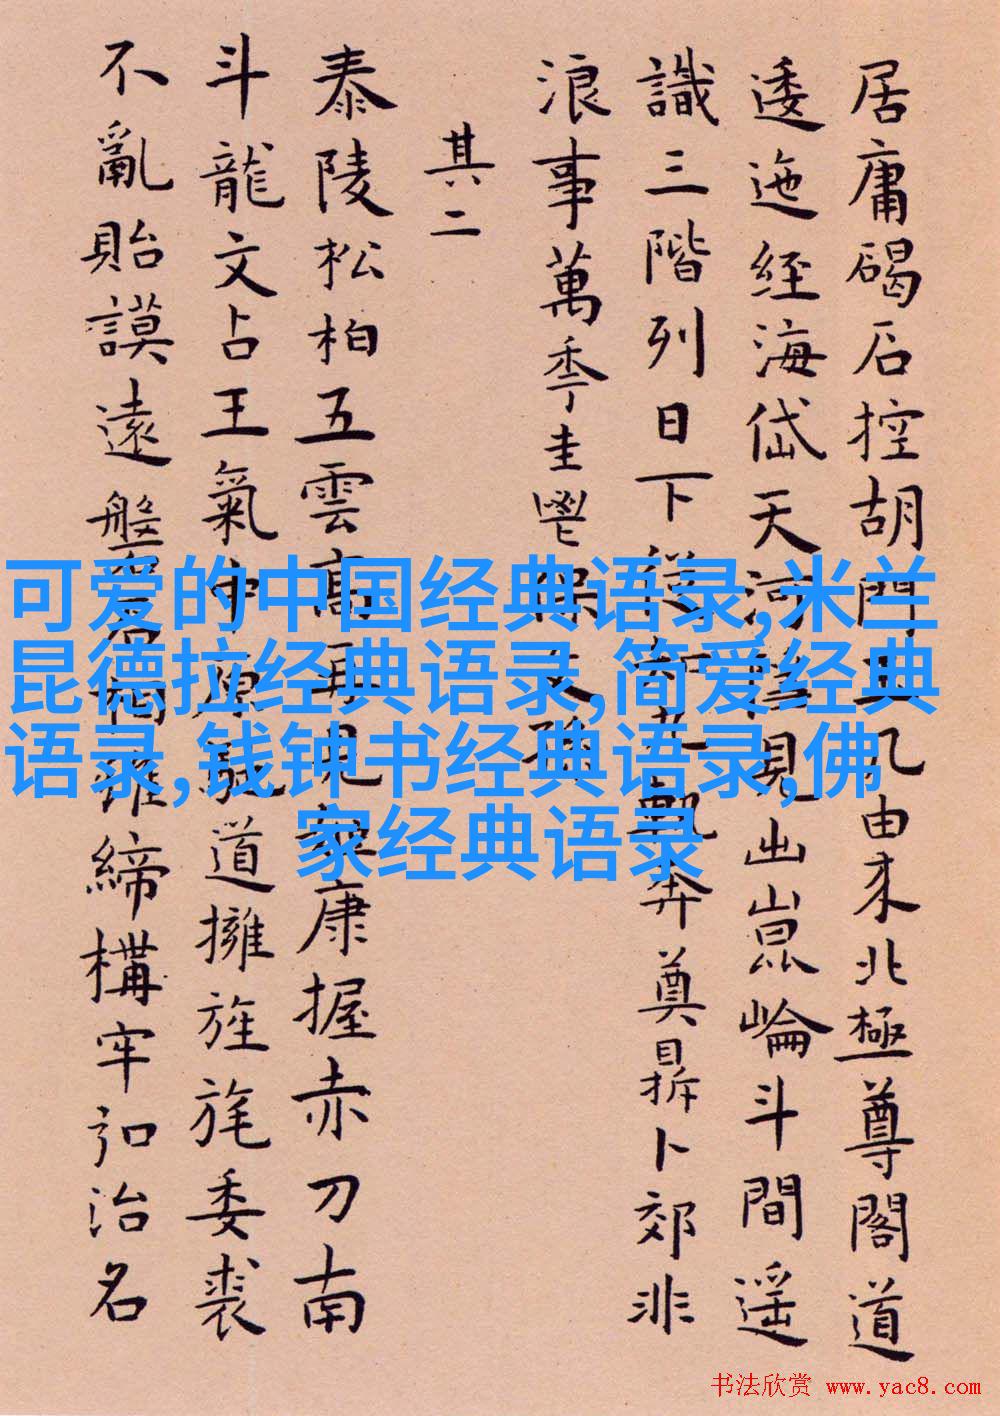 居庸碣石控胡門
由来北極尊閣道
逶迤經海岱天河
見出崑崙斗間遥
識三階列日下
奔奠鼎卜郊非
浪事萬季圭鬯
其二
泰陵松柏五雲高
康握赤刀南
斗龍文占王氣中原
道擁旌旄委裘
不亂貽謨遠盤
締構牢知治名
可爱的中国经典语录,米兰
昆德拉经典语录,简爱经典
语录,钱钟书经典语录,佛
家经典语录
书法欣赏 www.yac8.com